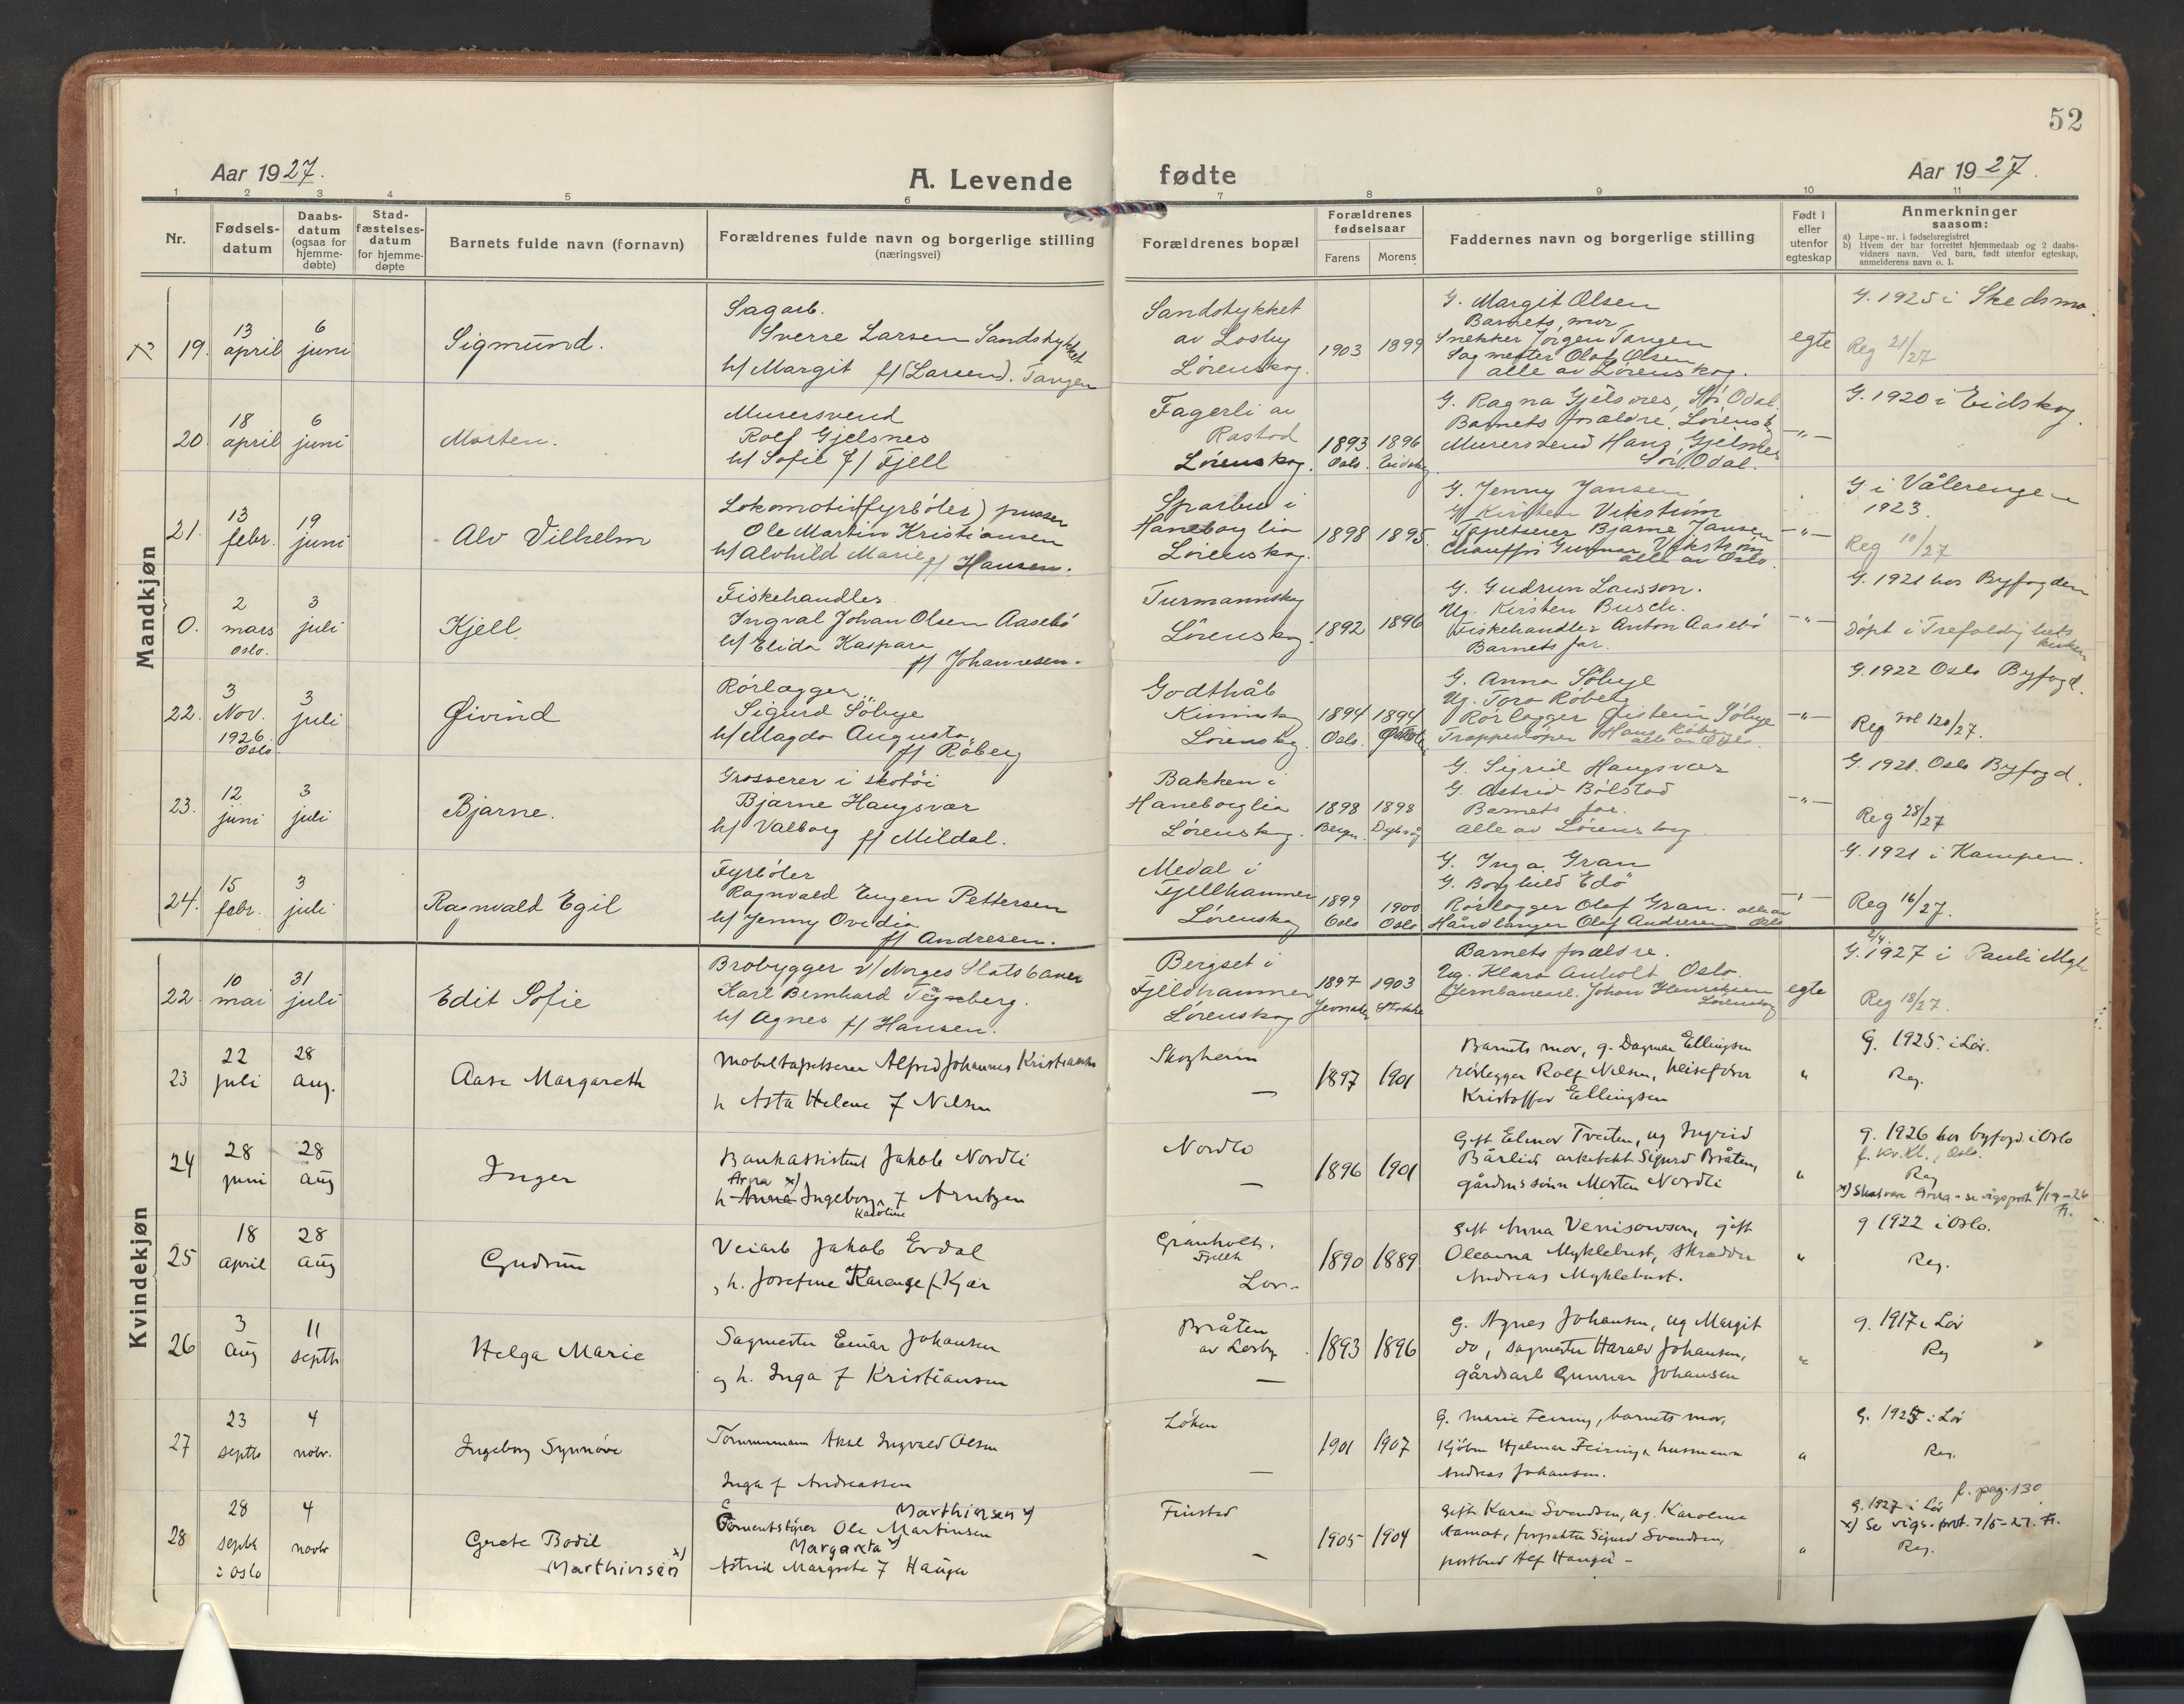 52
Aar 1927.
A. Levende fødte
Aar 1927.
1 2 3 4 5 6 7 8 9 10 11
Nr.
Fødsels-
datum
Daabs-
datum
(ogsaa for
hjemme-
døbte)
Stad-
fæstelses-
datum
for hjemme-
døpte
Barnets fulde navn (fornavn)
Forældrenes fulde navn og borgerlige stilling
(næringsvei)
Forældrenes bopæl
Forældrenes
fødselsaar
Farens
Morens
Faddernes navn og borgerlige stilling
Født i
eller
utenfor
egteskap
Anmerkninger
saasom:
a) Løpe-nr. i fødselsregistret
b) Hvem der har forrettet hjemmedaab og 2 daabs-
vidners navn. Ved barn, født utenfor egteskap,
anmelderens navn o. l.
Mandkjøn
19.
13
april
6
juni
Sigmund.
Sagarb.
Sverre Larsen Sandstykket
h/ Margit f/ (Larsen). Tangen
Sandstykket
av Losby
Lørenskog.
1903
1899
G. Margit Olsen
Barnets mor
Snekker Jørgen Tangen
Sagmester Olaf Olsen
alle av Lørenskog.
egte
G. 1925 i Skedsmo.
Reg 21/27
20.
18
april
6
juni
Morten.
Murersvend
Rolf Gjelsnes
h/ Sofie f/ Fjell
Fagerli av
Rastad
Lørenskog.
1893
Oslo.
1896
Eidskog
G. Ragna Gjelsnes, Sør Odal.
Barnets forældre, Lørensk.
Murersvend Hans Gjelsnes
Sør Odal.
-"-
G. 1920 i Eidskog.
21.
13
febr.
19
juni
Alv Vilhelm
Lokomotiv(fyrbøter) pusser
Ole Martin Kristiansen
h/ Alvhild Marie f/ Hansen.
Sparbu i
Haneborglia
Lørenskog.
1898
1895.
G. Jenny Jansen
G/ Kirsten Vikstrøm
Tapetserer Bjarne Jansen
Chauffør Gunnar Vikstrøm
alle av Oslo.
-"-
G i Vålerengen
1923.
Reg 10/27
0.
2
mars
Oslo.
3
juli
Kjell.
Fiskehandler
Ingval Johan Olsen Aasebø
h/ Elida Kaspara
f/ Johannesen.
Turmannskog
Lørenskog.
1892
1896
G. Gudrun Larsson.
Ug. Kirsten Busch.
Fiskehandler Anton Aasebø
Barnets far.
-"-
G. 1921 hos Byfogden
Døpt i Trefoldighets
kirken
22.
3
Nov.
1926
Oslo
3
juli
Øivind
Rørlægger
Sigurd Søbye
h/ Magda Augusta
f/ Røberg
Godthåb
Lørenskog.
1894
Oslo.
1894
G. Anna Søbye
Ug. Tora Røberg
Rørlægger Øistein Søbye
Trappestøper Hans Røberg
alle av Oslo.
-"-
G. 1922 Oslo Byfogd.
Reg 120/27.
23.
12
juni
3
juli
Bjarne.
Grosserer i skotøi
Bjarne Haugsvær
h/ Valborg f/ Mildal.
Bakken i
Haneborglia
Lørenskog.
1898
Bergen.
1898
G. Sigrid Haugsvær
G. Astrid Bølstad
Barnets far.
alle av Lørenskog
-"-
G. 1921. Oslo Byfogd.
Reg 28/27
24.
15
febr.
3
juli
Ragnvald Egil
Fyrbøter
Ragnvald Eugen Pettersen
h/ Jenny Ovidia
f/ Andresen.
Medal i
Fjellhammer
Lørenskog
1899
Oslo
1900
Oslo
G. Inga Gran
G. Borghild Edø
Rørlægger Olaf Gran. alle av
Håndlanger Olaf Andresen Oslo
-"-
G. 1921 i Kampen.
Reg 16/27.
Kvindekjøn
22
10
mai
31
juli
Edit Sofie
Brobygger v/ Norges Statsbaner
Karl Bernhard Tegnberg.
h/ Agnes f/ Hansen.
Bergset i
Fjeldhammer
Lørenskog
1897
1903
Barnets forældre.
Ug. Klara Anholt Oslo.
Jernbanearb. Johan Henriksen
Lørenskog
egte
G. 1927 i Pauli Mgh
Reg 18/27.
23
22
juli
28
aug.
Aase Margareth
Møbeltapetserer Alfred Johannes Kristiansen
h Asta Helene f Nilsen
Skogheim
—
1897
1901
Barnets mor, g. Dagmar Ellingsen
rørlegger Rolf Nilsen, heisefører
Kristoffer Ellingsen
"
G. 1925 i Lør.
Reg.
24
28
juni
28
aug
Inger
Bankassistent Jakob Nordli
Arna x)
h Anna Ingeborg f Arntzen
Karoline
Nordli
—
1896
1901
Gift Elinor Tveiten, ug Ingrid
Bårlid, arkitekt Sigurd Bråten,
gårdmssønn Morten Nordli
"
g. 1926 hos byfogd i Oslo
f. Kv.Kl., Oslo.
Reg
x) Skal være Arna - se vigsprot 6/19-26
25
18
april
28
aug
Gudrun
Veiarb Jakob Evdal
, h. Josefine Karenge f Kjær
Granholt,
Fjellh
Lør-
1890
1889
Gift Anna Venisowsen, gift
Oleanna Myklebust, skredder
Andreas Myklebust.
"
g 1922 i Oslo.
Reg.
26
3
aug
11
septb
Helga Marie
Sagmester Einar Johansen
og h. Inga f Kristiansen
Bråten
av Losby
—
1893
1896
G. Agnes Johansen, ug Margit
do, sagmester Harald Johansen,
gårdsarb Gunnar Johansen
"
g. 1917 i Lør
Reg
27
23
septb
4
nobr.
Ingeborg Synnøve
Tømmermann Aksel Ingvald Olsen
Inga f Andreassen
Løken
—
1901
1907
G. Marie Feiring, barnets mor,
Kjøbm Hjalmar Feiring, husmann
Andreas Johansen.
"
G. 1925 i Lør
Reg.
28
28
septb
i Oslo
4
novbr
Grete Bodil
Marthinsen x)
Marthinsen x)
Cementstøper Ole Martinsen
Margareta x)
Astrid Margrete f Hauger
Finstad
—
1905
1904
Gift Karen Svendsen, ug. Karoline
Aamot, forpakter Sigurd Svendsen,
postbud Alf Hauger -
"
f. pag. 130
G. 1927 i Lør
x) Se vigs.prot. 7/5-27. Fr.
Reg.